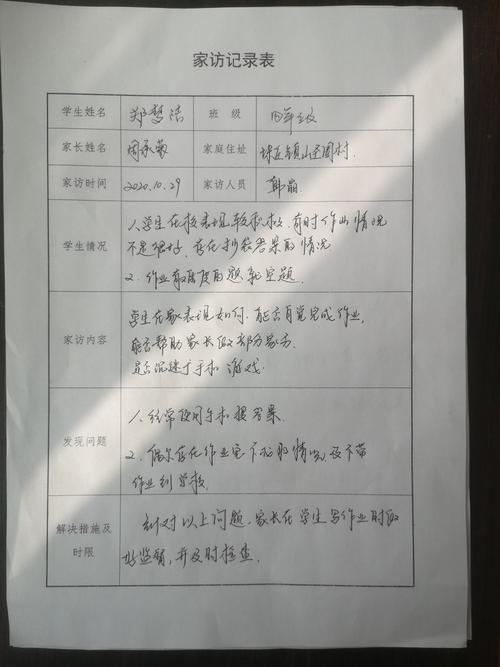 家访记录表
学生姓名 郑梦洁 班级 四年级
家长姓名 周永蓉 家庭住址 镇山还周村
家访时间 2020.10.29 家访人员 郭晶
学生情况
1.学生在校表现较积极,有时作业情况
不是很好,存在抄袭答案的情况
2.作业有难度的题就空题.
家访内容
学生在家表现如何,能否自觉完成作业,
能否帮助家长做部分家务.
是否沉迷于手机游戏.
发现问题
1.经常使用手机搜答案.
2.偶尔存在作业完不成的情况及不带
作业到学校
解决措施及
时限
针对以上问题,家长在学生写作业时做
好监督,并及时检查.